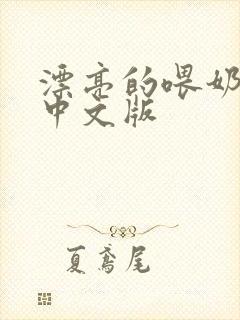 漂亮的喂奶
中文版
夏鸢尾